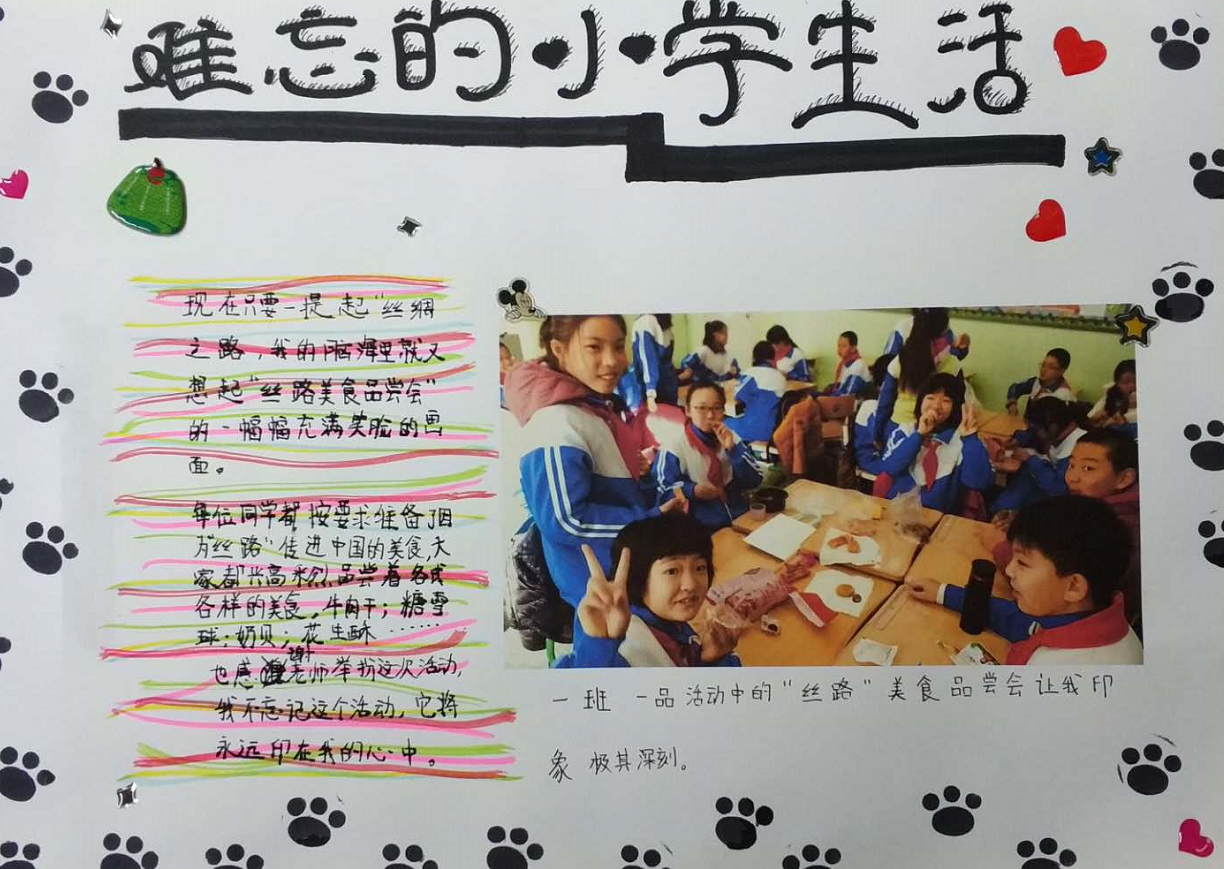 难忘的小学生活
现在只要一提起“丝绸
之路，我的脑海里就又
想起“丝路美食品尝会”
的一幅幅充满笑脸的画
面。
每位同学都按要求准备了因
为“丝路”传进中国的美食，大
家都兴高采烈品尝着各式
各样的美食。牛肉干；糖雪
球；奶贝；花生酥……
也感谢老师举办这次活动，
我不忘记这个活动，它将
永远印在我的心中。
一班一品活动中的“丝路”美食品尝会让我印
象极其深刻。